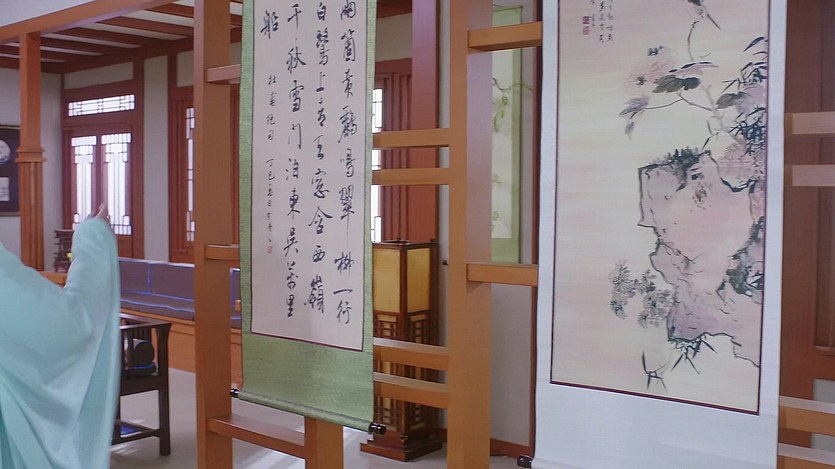 兩箇黃鸝鳴翠柳一行
白鷺上青天窗含西嶺
千秋雪門泊東吳萬里
船
杜甫絕句